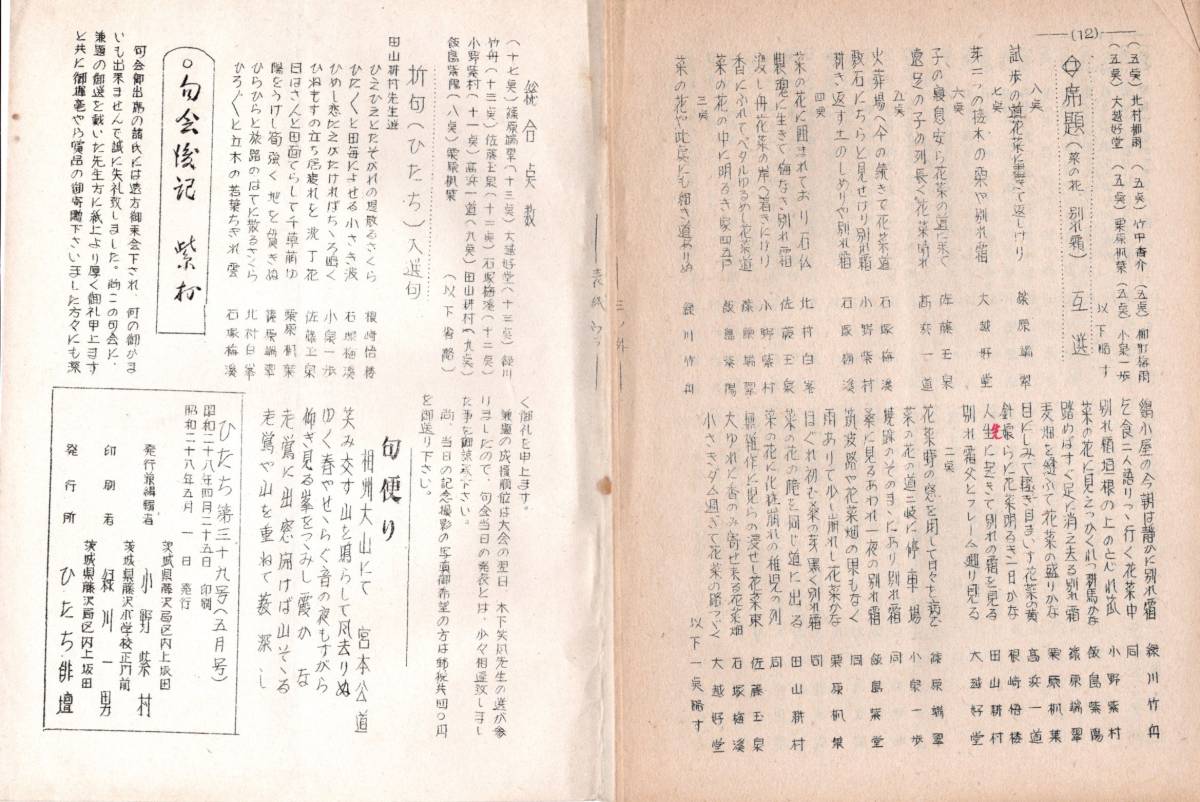 (12)
(五点) 北村柳雨 (五点) 竹中杏介 (五点) 柳町梅雨
(五点) 大越好堂 (五点) 栗原帆葉 (五点) 小泉一歩
以下略す
席題(菜の花 別れ霜) 互選
八点
試歩の道花菜に憩きて返しけり 篠原端翠
七点
芽二つの接木の朶や別れ霜 大越好堂
六点
子の寝息安ら花菜の道に来て 佐藤玉泉
遠足の子の列長く花菜晴れ 高萩一道
五点
火葬場へ今の続きて花菜道 石塚梅渓
敷石にちらと見せけり別れ霜 小野紫村
耕き返す土のしめりや別れ霜 石塚梅渓
四点
菜の花に囲まれており石仏 北村白峯
製魂に生きて悔なき別れ霜 佐藤玉泉
渡し舟花菜の岸へ着きにけり 小野紫村
香にふれてペタルゆるめし花菜道 篠原端翠
菜の花の中に明るき家四五戸 飯島紫陽
三点
菜の花や此処にも細き道ありぬ 緑川竹舟
鶏小屋の今朝は静かに別れ霜 緑川竹舟
乞食二人語りつゝ行く花菜中 同
別れ霜垣根の上のとぐれ瓜 小野紫村
菜の花に見えつかくれつ耕馬かな 飯島紫陽
踏めばすぐ足に消え去る別れ霜 篠原端翠
麦畑を縫ふて花菜の盛りかな 栗原帆葉
目にしみて揺き目まいす花菜の黄 高浜一道
針娘らに花菜明るき一日かな 根崎悟楼
人生に起きて別れの霜を見る 田山耕村
別れ霜父とフレーム廻り見る 大越好堂
二点
花菜野の窓を開して日々を病む 篠原端翠
菜の花の道三岐に停車場 小泉一歩
焼跡のそのまゝにあり別れ霜 同
桑に見るあわれ一夜の別れ霜 飯島紫堂
筑波路や花菜畑の果もなく 同
雨ありて少し崩れし花菜かな 栗原帆葉
ほぐれ初む菜の芽黒く別れ霜 同
菜の花の院を同じ道に出る 田山耕村
菜の花に化粧崩れの稚児の列 同
無雑作に見らの浸せし花菜束 佐藤玉泉
大ゆれに香のみ寄せ来る花菜畑 石塚梅渓
小さきダム過ぎて花菜の路つゞく 大越好堂
以下一点略す
三ノ外
表紙ウラ
総合点数
(十七点) 篠原端翠 (十三点) 大越好堂 (十三点) 緑川
竹舟 (十三点) 佐藤玉泉 (十二点) 石塚梅渓 (十二点)
小野紫村 (十一点) 高浜一道 (九点) 田山耕村 (九点)
飯島紫陽 (八点) 栗原帆葉
(以下省略)
折句(ひたち)入選句
田山耕村先生選
ひえびえとたそがれの堤散るさくら 根崎悟楼
ひたくと田毎によせる小さき波 石塚梅渓
ひめし恋たえがたければちゝろ鳴く 小泉一歩
ひねもすの立ち居疲れを沈丁花 佐藤玉泉
日ほさんと田面てらして千草萌ゆ 栗原帆葉
陽をうけし筍強く地を貫きぬ 篠原端翠
ひらひらと旅路のはてに散るさくら 北村白峯
ひろびろと立木の若葉ちぎれ雲 石塚梅渓
○句会後記 紫村
句会御出席の諸氏には遠方御来会下され、何の御かま
いも出来ませんで誠に失礼致しました。尚この句会に、
兼題の御選を戴いた先生方に紙上より厚く御礼申上ます
と共に御揮毫やら賞品の御寄贈下さいました方々にも深
く御礼を申上ます。
兼題の成績順位は大会の翌日、木下笑風先生の選が参
りましたので、句会当日の発表とは、少々相違致しまし
た事を御諒承下さい。
尚、当日の記念撮影の写真御希望の方は郵税共四〇円
を御送り下さい。
句便り
相州大山にて 宮本公道
笑み交す山を鳴らして風去りぬ
ゆく春やせゝらぐ音の夜もすがら
仰ぎ見る峯をつゝみし霞かな
老鶯に出窓開けば山そゝる
老鶯や山を重ねて菱深し
ひたち第三十九号(五月号)
昭和二十八年四月二十五日 印刷
昭和二十八年五月一日 発行
茨城県藤沢局区内上坂田
発行兼編輯者 小野紫村
茨城県藤沢小学校正門前
印刷者 緑川一男
茨城県藤沢局区内上坂田
発行所 ひたち俳壇